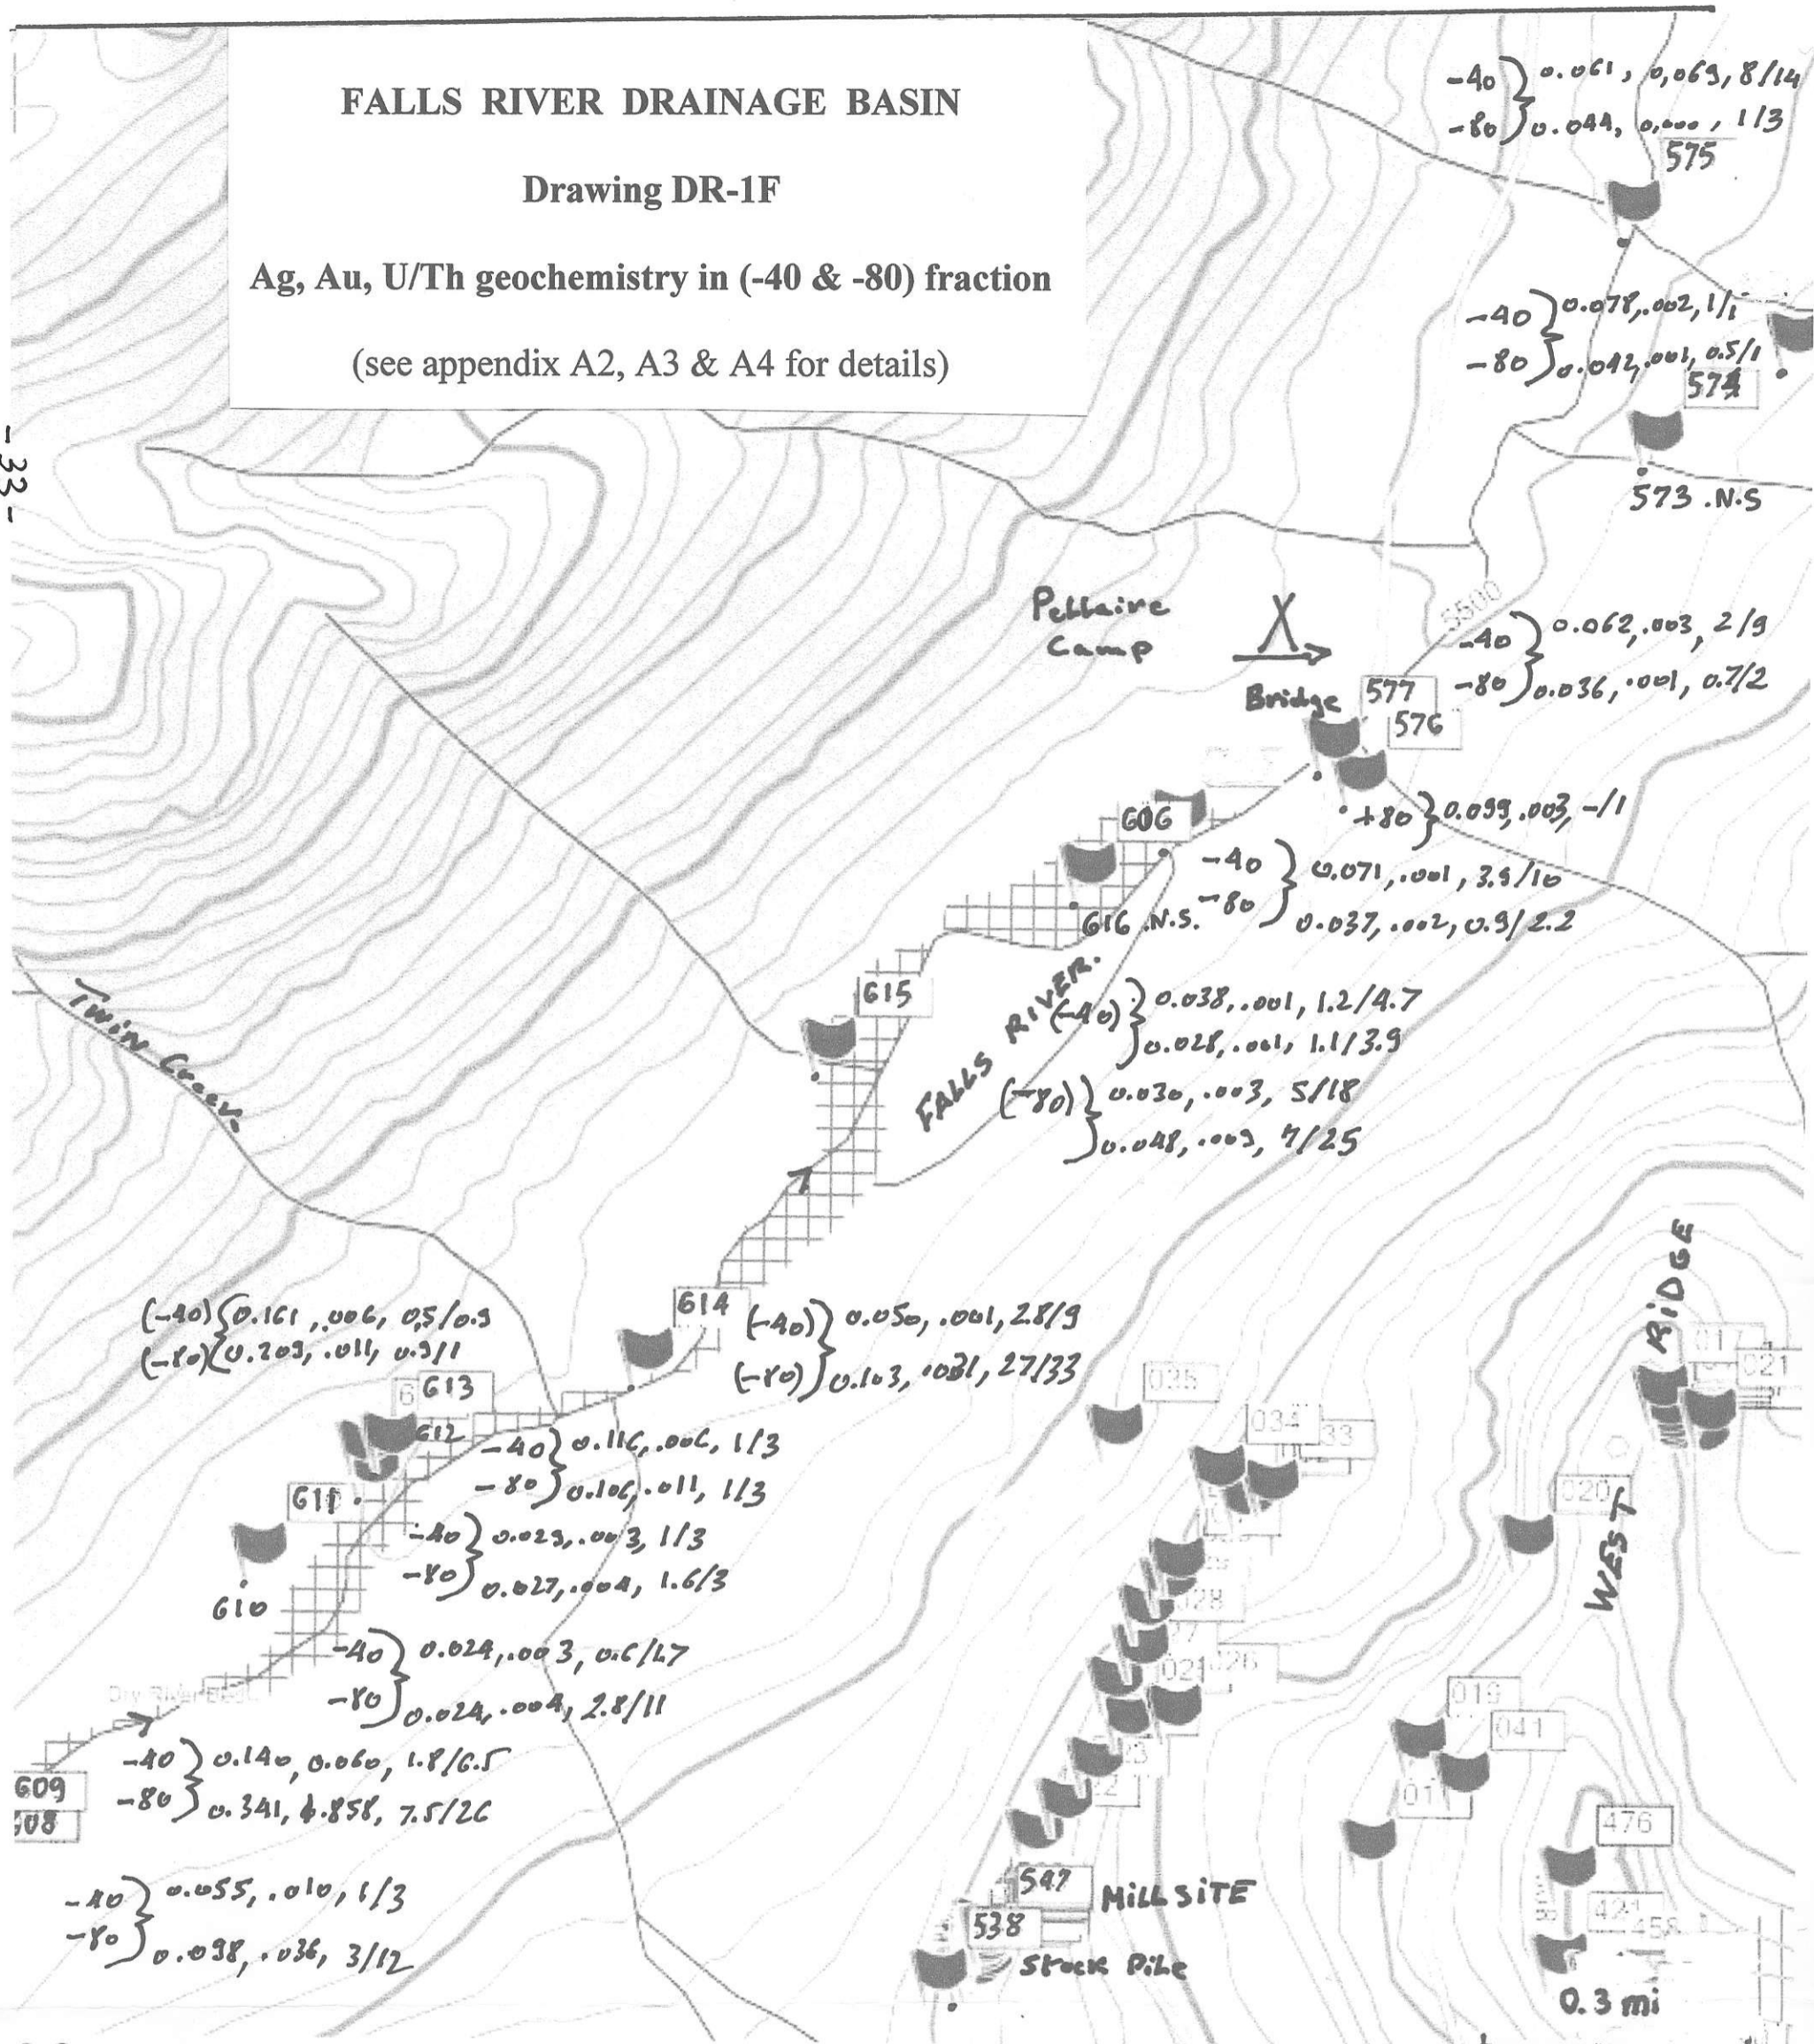 FALLS RIVER DRAINAGE BASIN
Drawing DR-1F
Ag, Au, U/Th geochemistry in (-40 & -80) fraction
(see appendix A2, A3 & A4 for details)
-33-
-40 } 0.061, 0,069, 8/14
-80 } 0.044, 0,000, 1/3
575
-40 } 0.078, .002, 1/1
-80 } 0.042, .001, 0.5/1
574
573 .N.S
Pellaire
Camp
5500
-40 } 0.062, .003, 2/9
-80 } 0.036, .001, 0.7/2
Bridge
577
576
+80 } 0.099, .003, -/1
606
-40 } 0.071, .001, 3.9/10
-80 } 0.037, .002, 0.9/2.2
616 .N.S.
615
FALLS RIVER.
(-40) } 0.038, .001, 1.2/4.7
0.028, .001, 1.1/3.9
(-80) } 0.030, .003, 5/18
0.048, .009, 7/25
Twin Creek
(-40) { 0.161, .006, 0,5/0.9
(-80) { 0.209, .011, 0.9/1
614
(-40) } 0.050, .001, 2.8/9
(-80) } 0.103, .031, 27/33
613
612
-40 } 0.116, .006, 1/3
-80 } 0.106, .011, 1/3
611
-40 } 0.029, .003, 1/3
-80 } 0.027, .004, 1.6/3
610
-40 } 0.024, .003, 0.6/1.7
-80 } 0.024, .004, 2.8/11
Dry River Bed
-40 } 0.140, 0.060, 1.8/6.5
-80 } 0.341, .858, 7.5/26
609
608
-40 } 0.055, .010, 1/3
-80 } 0.098, .036, 3/12
035
034
33
WEST RIDGE
017
021
020
28
026
019
041
01
476
547
MILL SITE
538
Stock Pile
0.3 mi